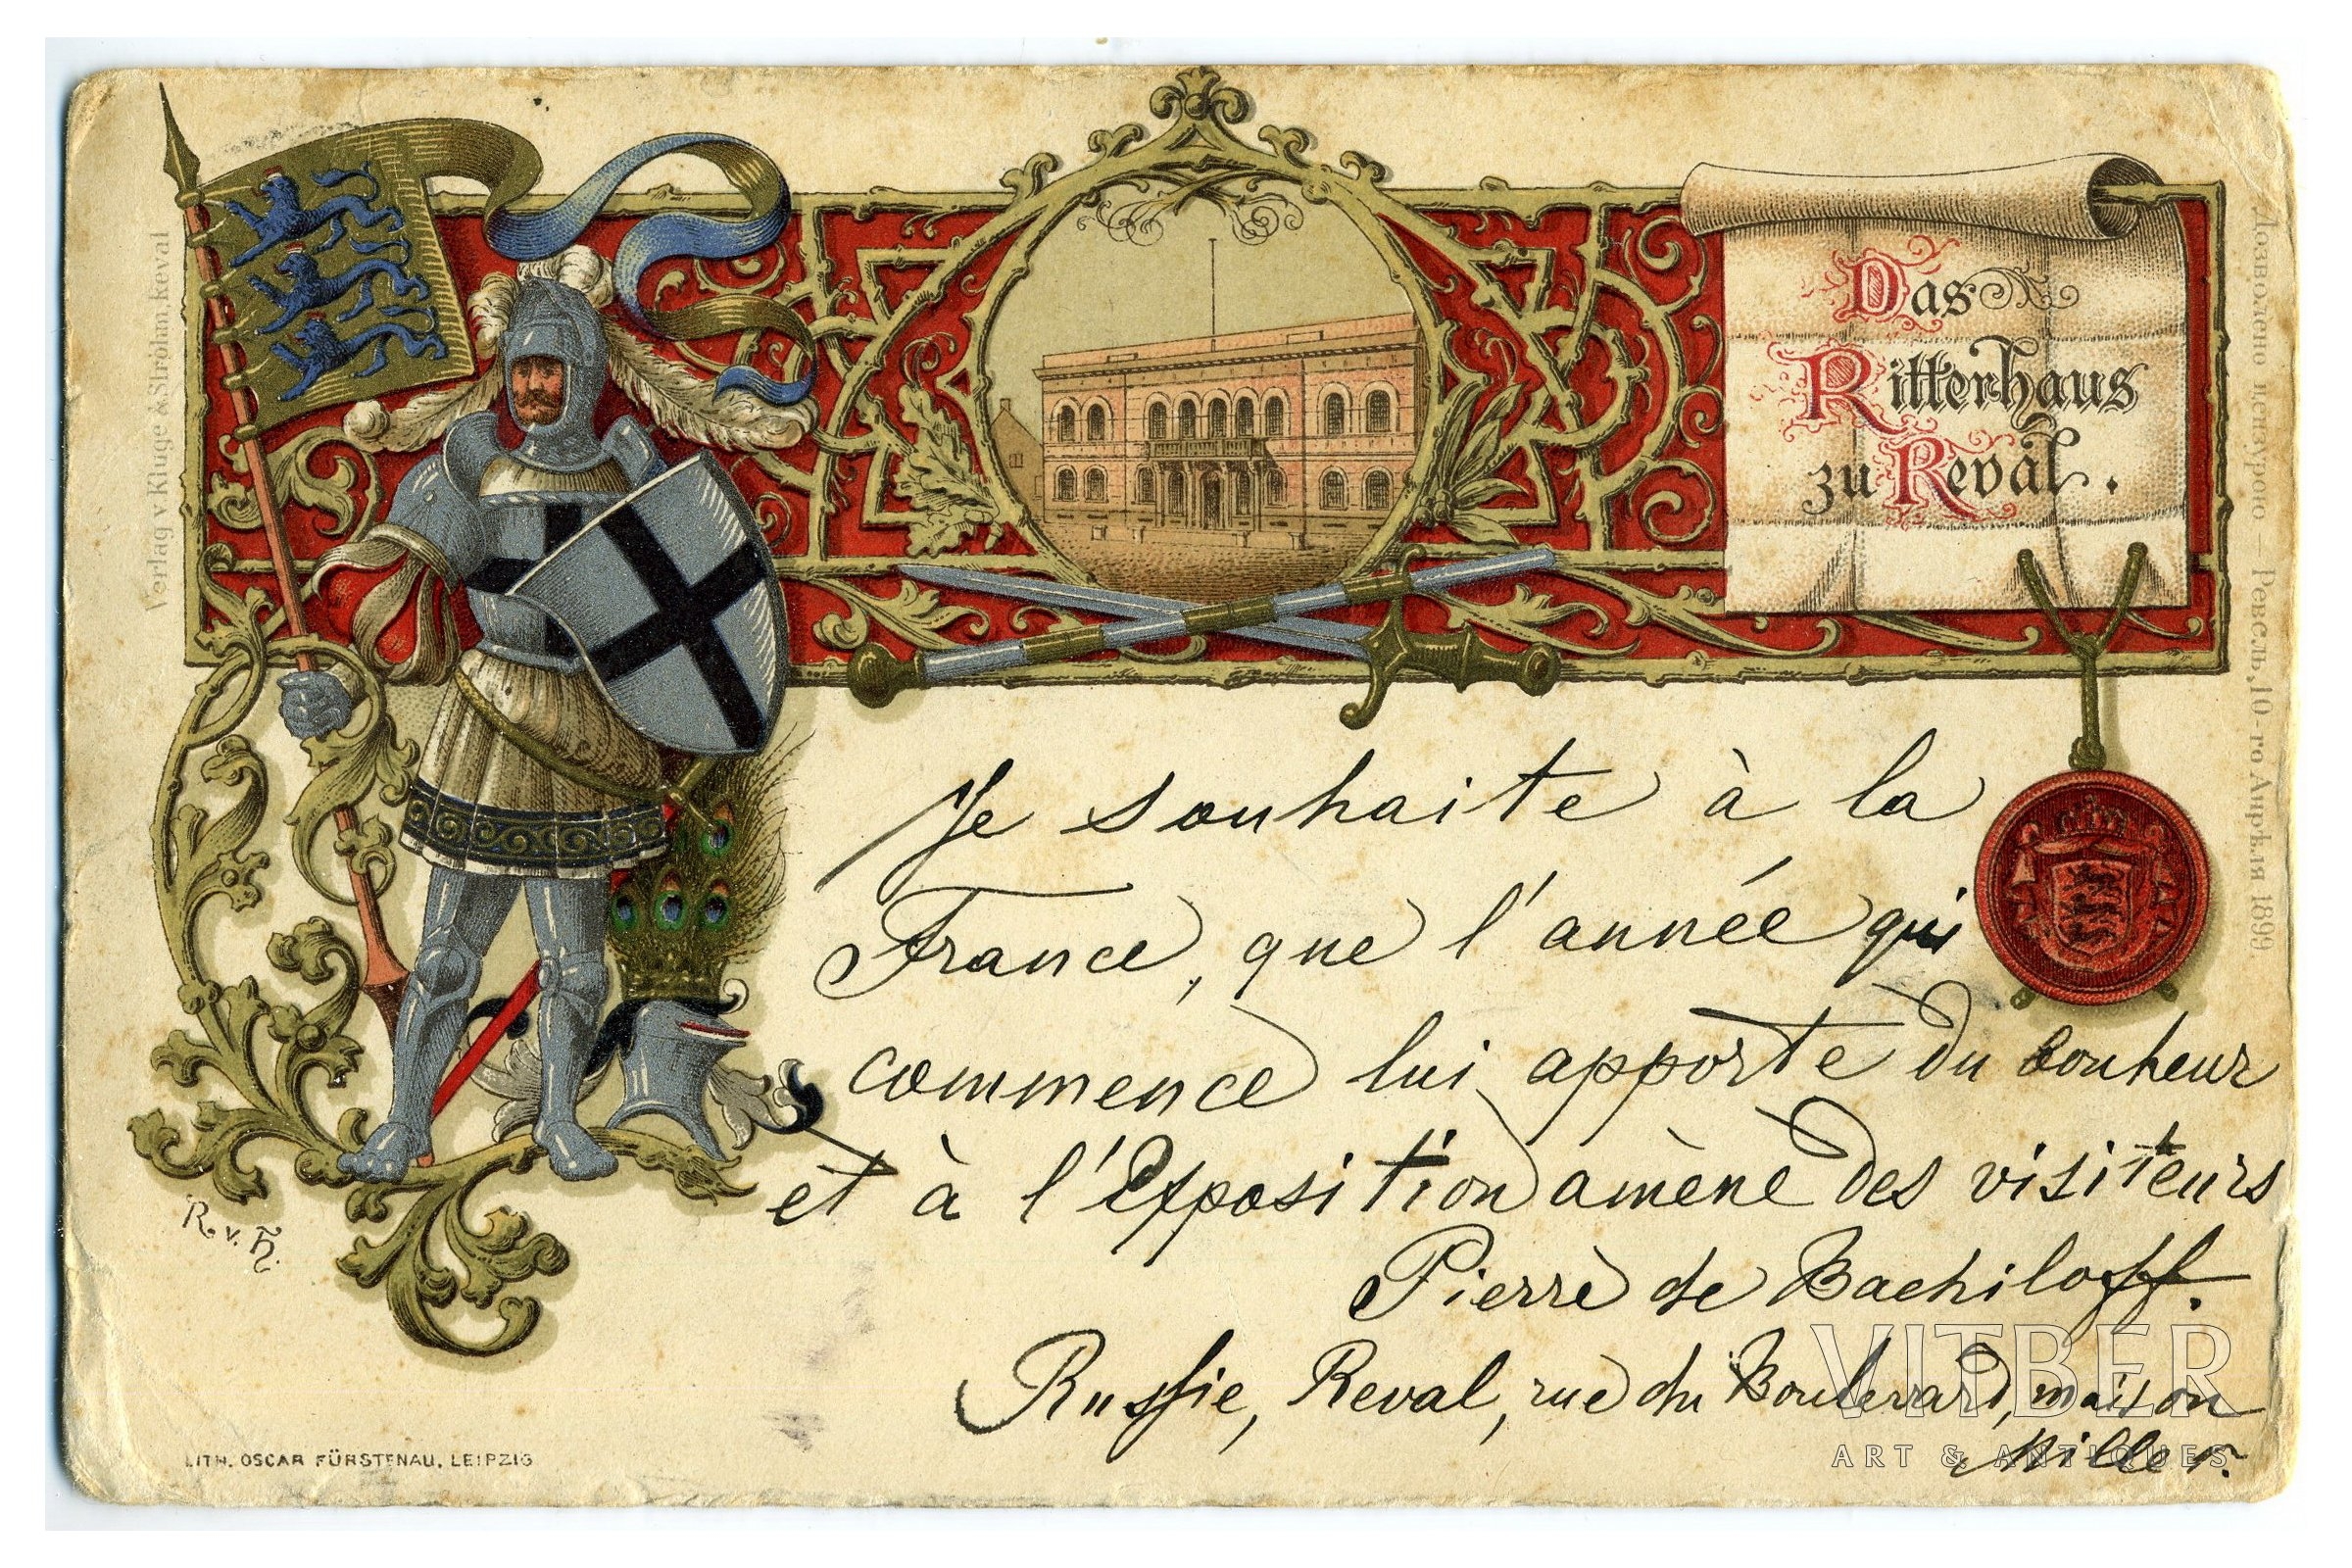 Verlag v. Kluge & Ströhm, Reval
Das
Ritterhaus
zu Reval.
Дозволено цензурою — Ревель, 10-го Апрѣля 1899
Je souhaite à la
France, que l'année qui
commence lui apporte du bonheur
et à l'Exposition amène des visiteurs
Pierre de Bachiloff.
Russie, Reval, rue du Boulevard, maison
Miller.
R. v. H.
LITH. OSCAR FÜRSTENAU, LEIPZIG
VITBER
ART & ANTIQUES